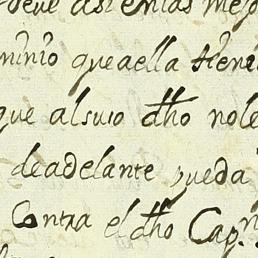 deve asi en las mejo
minio que a ella tiene
que al suio dho no le
de adelante pueda
Contra el dho Capn